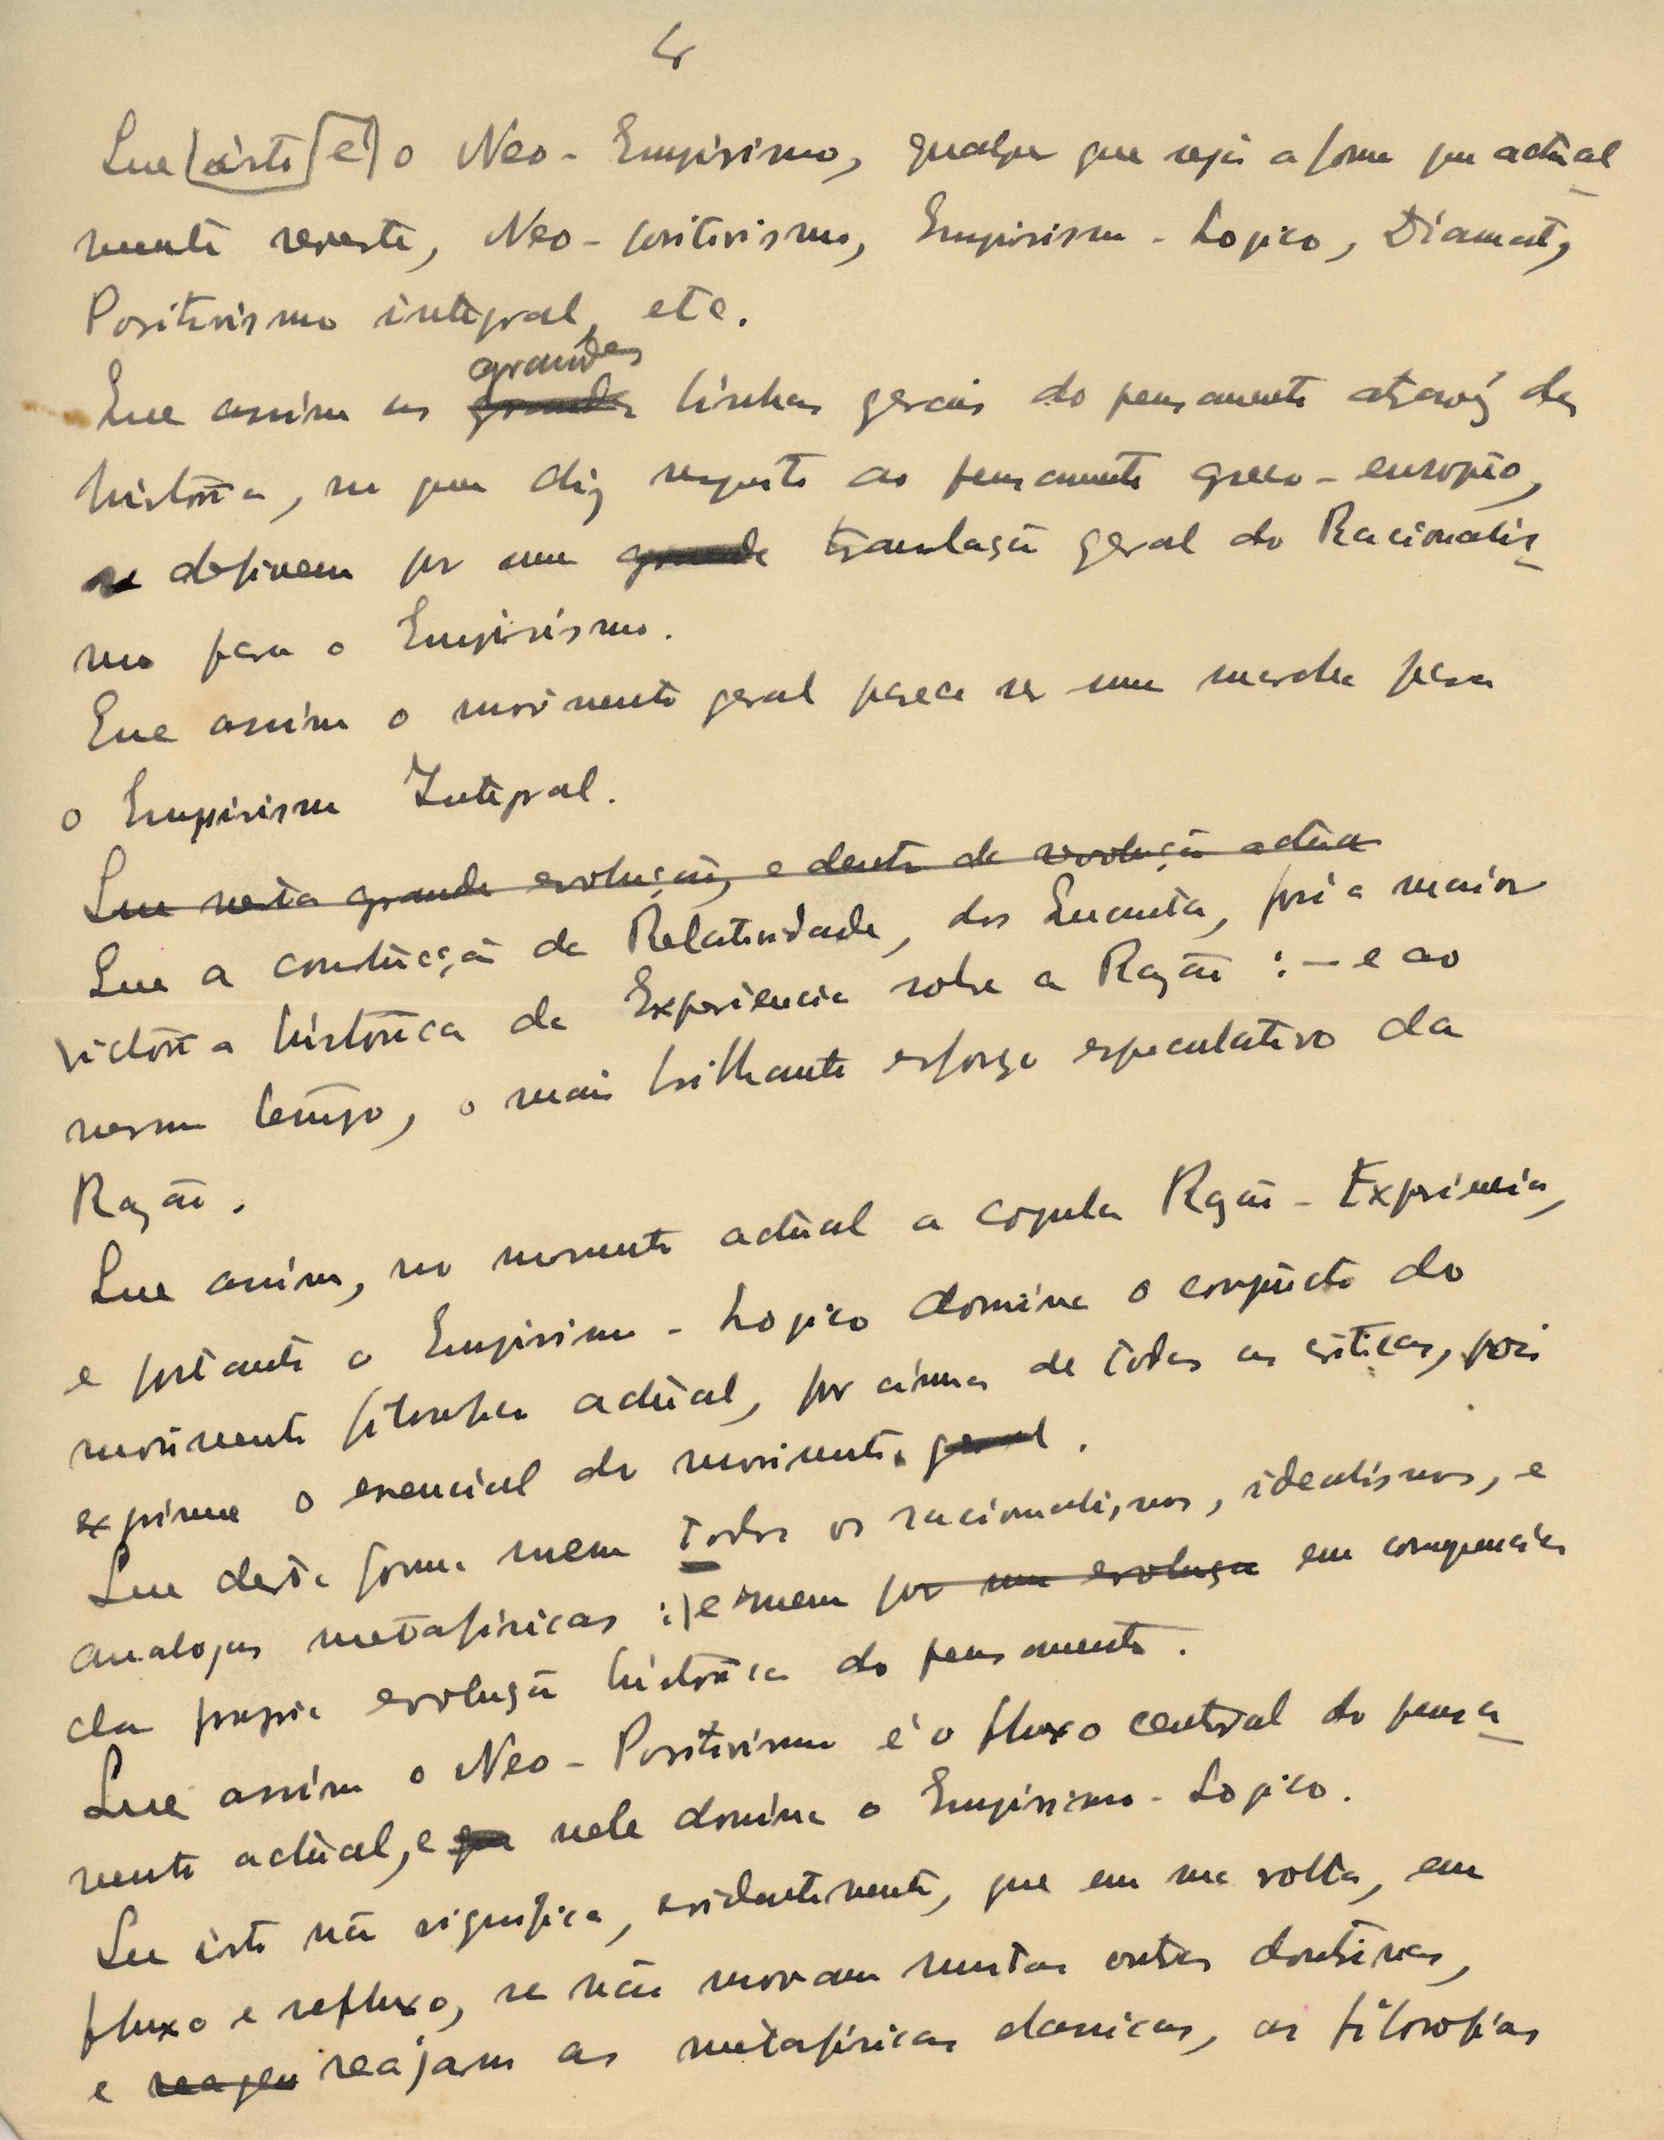 4
Que isto é o Neo-Empirismo, qualquer que seja a forma que actual
mente reveste, Neo-positivismo, Empirismo-Logico, Diamat,
Positivismo integral, etc.
grandes
Que assim as grandes linhas gerais do pensamento através da
história, no que diz respeito ao pensamento greco-europeo,
se definem por uma grande translação geral do Racionalis-
mo para o Empirismo.
Que assim o movimento geral parece ser uma marcha para
o Empirismo Integral.
Que nesta grande evolução, e dentro da evolução actual
Que a construcção da Relatividade, dos Quanta, foi a maior
victória histórica da Experiencia sobre a Razão :- e ao
mesmo tempo, o mais brilhante esforço especulativo da
Razão.
Que assim, no momento actual a copula Razão-Experiencia,
e portanto o Empirismo-Logico domina o conjuncto do
movimento filosofico actual, por cima de todas as criticas, pois
exprime o essencial do movimento geral.
Que desta forma morrem todos os racionalismos, idealismos, e
analogas metafisicas :) e morrem por uma evolução em consequencia
da propria evolução histórica do pensamento.
Que assim o Neo-Positivismo é o fluxo central do pensa-
mento actual, e que nele domina o Empirismo-Logico.
Que isto não significa, evidentemente, que em sua volta, em
fluxo e refluxo, se não movam muitas outras doutrinas,
e reagem reajam as metafisicas classicas, as filosofias